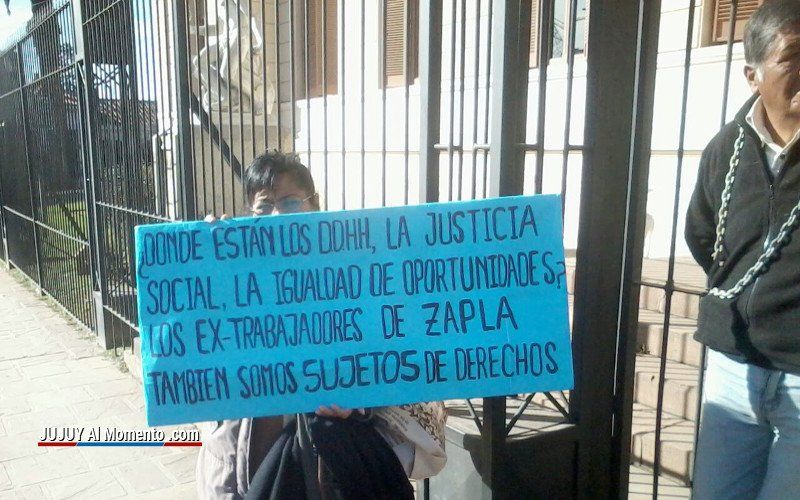 ¿DONDE ESTÁN LOS DDHH, LA JUSTICIA
SOCIAL, LA IGUALDAD DE OPORTUNIDADES?
LOS EX-TRABAJADORES DE ZAPLA
TAMBIEN SOMOS SUJETOS DE DERECHOS
JUJUY Al Momento .com